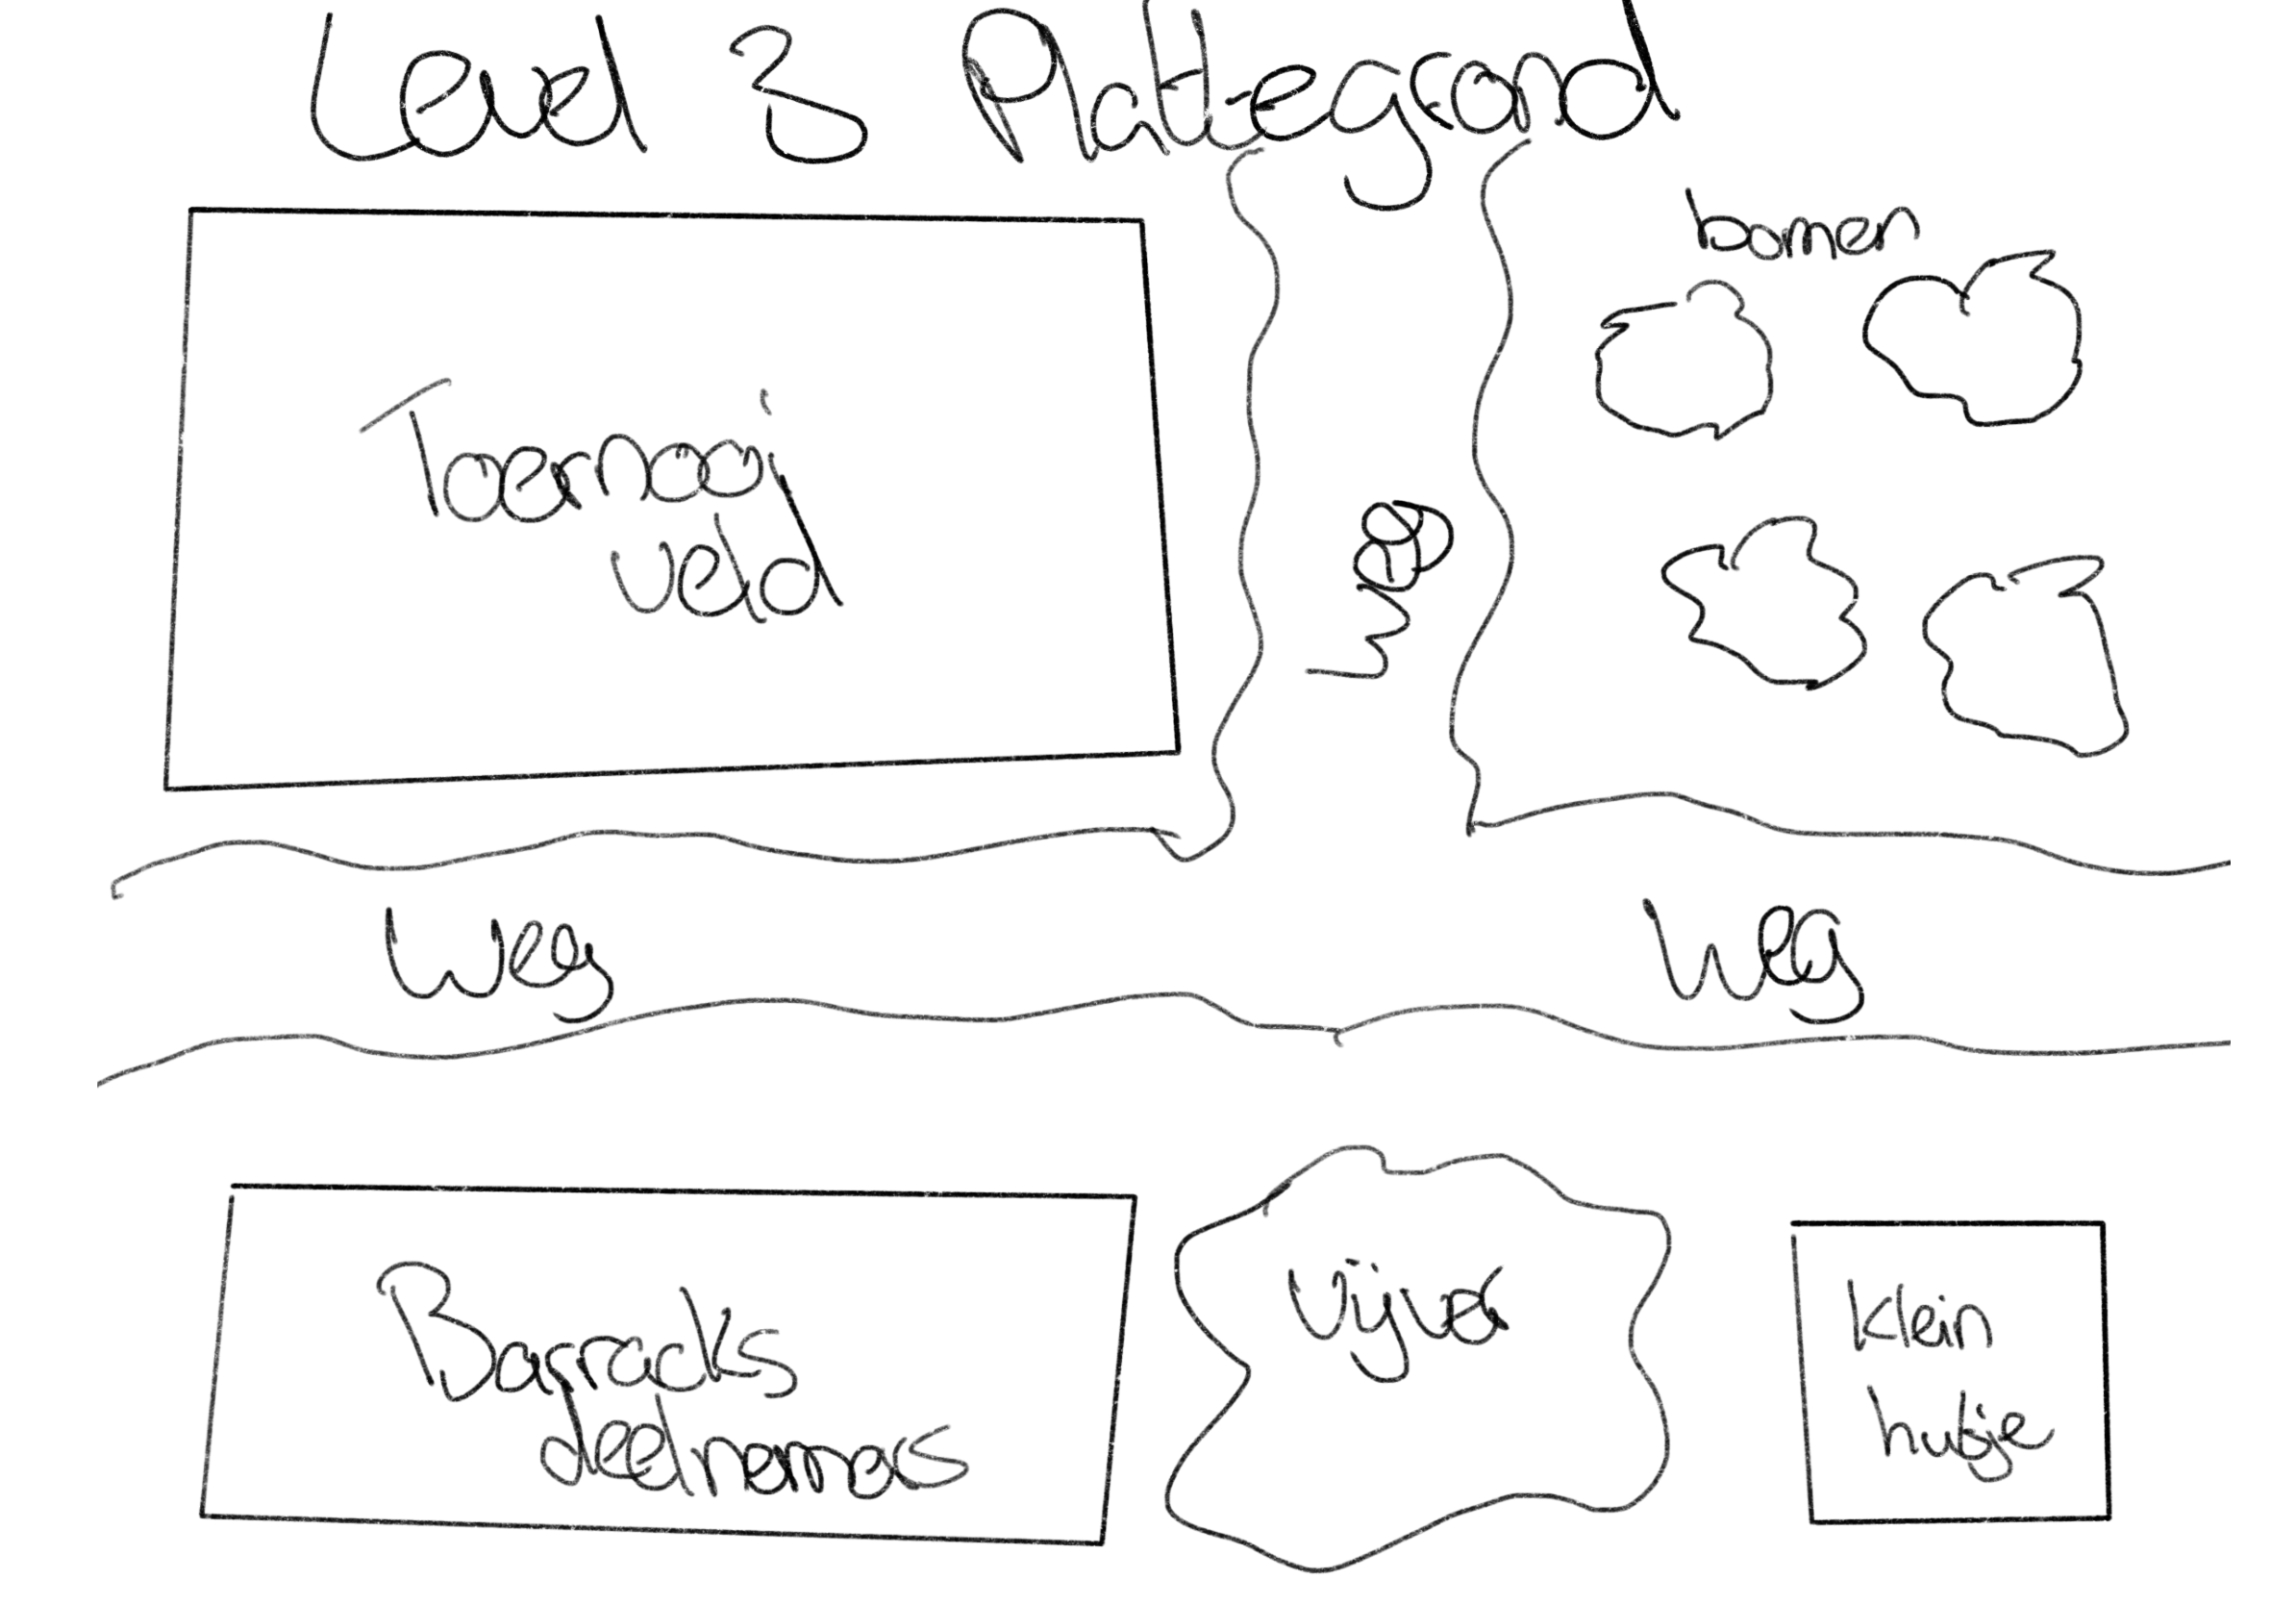 Level 3 Plattegrond
bomen
Toernooi
veld
weg
Weg
Weg
Barracks
deelnemers
Vijver
Klein
hutje